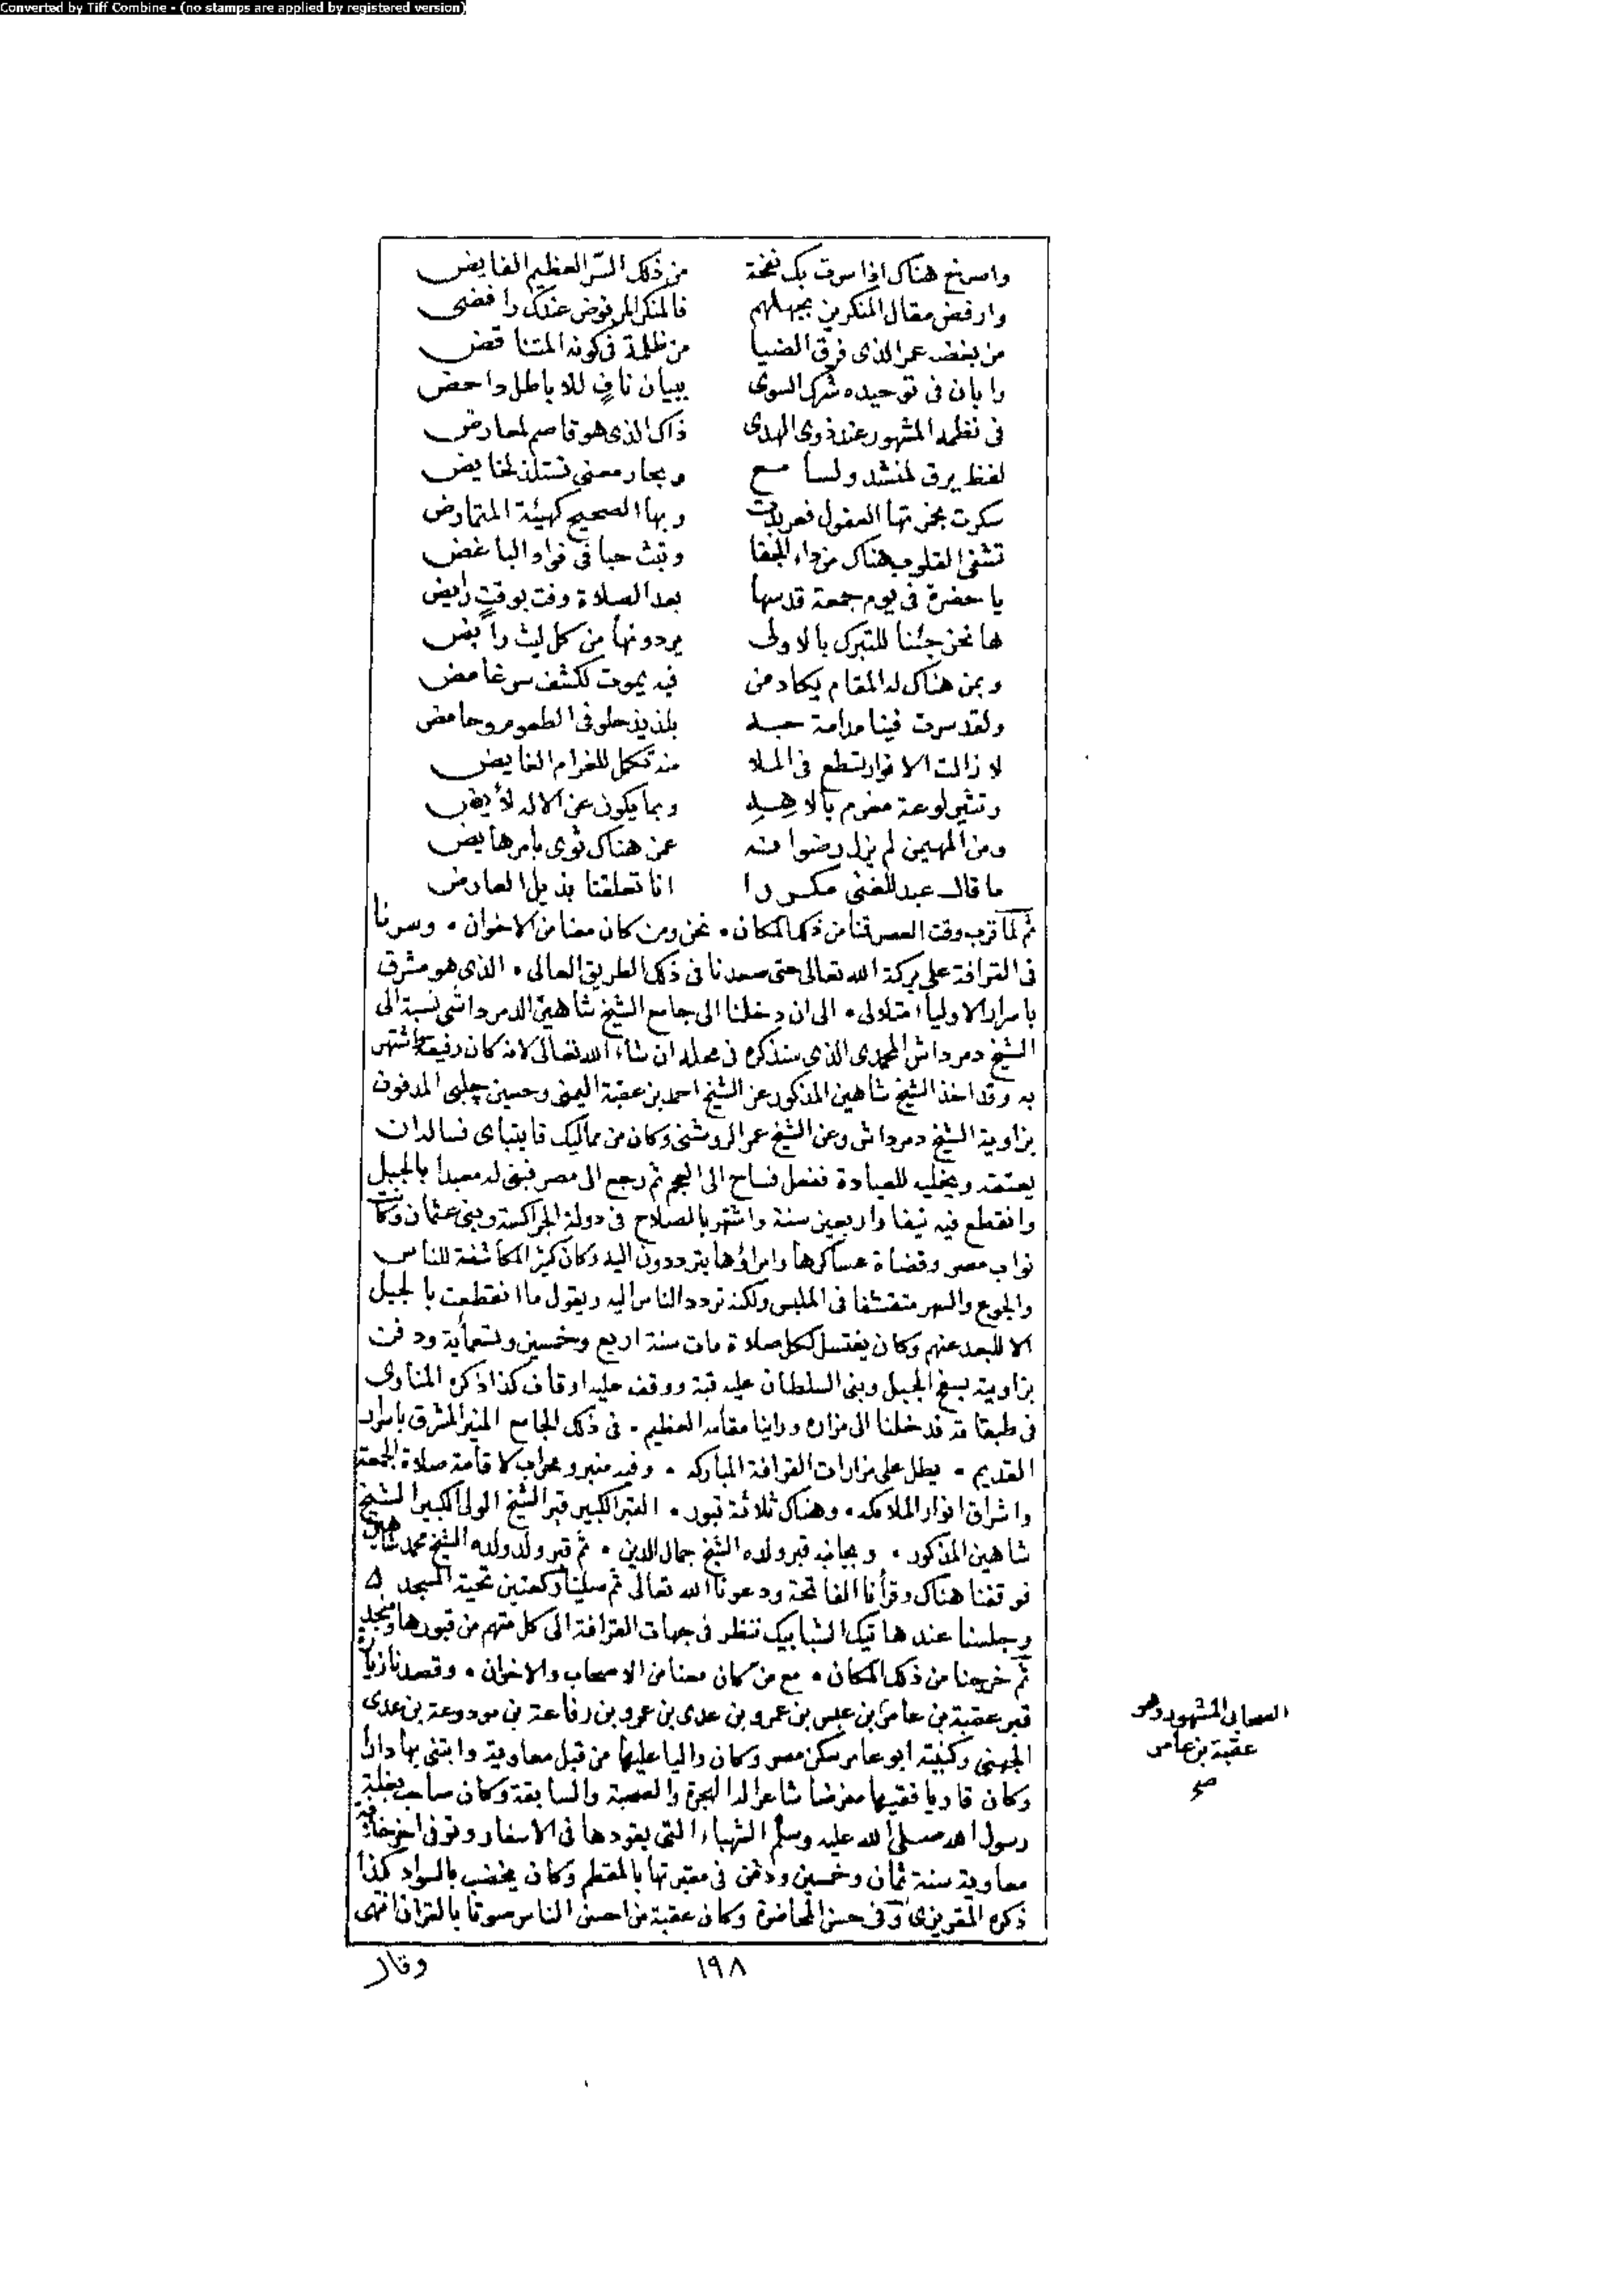 Converted by Tiff Combine - (no stamps are applied by registered version)
واصرخ هناك اذا سرت بك نفخة من ذلك السّر العظيم الفايض
وارفض مقال المنكرين بجهلهم فالمنكر المرفوض عندك رافضى
من بغضه عمر الذى فرق الضيا من ظلمة فى كونه المتناقض
وابان فى توحيده شرك السوى ببيان نافٍ للاباطل داحض
فى نظمه المشهور عند ذوى الهدى ذاك الذى هو قاصم لمعارض
لفظ يرق لمنشد ولسامع وبحار معنى تستلذ لخايض
سكرت بخمرتها العقول فعربدت وبها الصحيح كهيئة المتمارض
تشفى القلوب هناك من داء الجفا وتبث حبا فى فواد الباغض
يا حضرة فى يوم جمعة قدسها بعد الصلاة وفت بوقتٍ رايض
ها نحن جئنا للتبرك بالاولى يردونها من كل ليث رابض
وبمن هناك له المقام يكاد من فيه يموت لكشف سر غامض
ولقد سرت فينا مدامة حبه بلذيذ حلو فى الطعوم وحامض
لا زالت الانوار تسطع فى الملا منه تكمل للغرام الفايض
وتثير لوعة مغرم بالاهه وبما يكون عن الاله لأيض
ومن المهيمن لم يزل رضوانه عمن هناك ثوى بامر هايض
ما قال عبد الغنى مكررا انا تعلقنا بذيل العارض
ثم لما قرب وقت العصر قمنا من ذلك المكان ٠ نحن ومن كان معنا من الاخوان ٠ وسرنا
فى القرافة على بركة الله تعالى حتى صعدنا فى ذلك الطريق العالى ٠ الذى هو مشرق
باسرار الاولياء متلالى ٠ الى ان دخلنا الى جامع الشيخ شاهين الدمرداشى نسبة الى
الشيخ دمرداش المحمدى الذى سنذكره فى محله ان شاء الله تعالى لانه كان رفيقه واشتهر
به وقد اخذ الشيخ شاهين المذكور عن الشيخ احمد بن عقبة اليمنى وحسين چلبى المدفون
بزاوية الشيخ دمرداش وعن الشيخ عمر الروشنى وكان من مماليك قايتباى فساله ان
يعتقه ويخليه للعبادة ففعل فساح الى العجم ثم رجع الى مصر فبنى له معبدا بالجبل
وانقطع فيه نيفا واربعين سنة واشتهر بالصلاح فى دولة الجراكسة وبنى عثمان وكانت
نواب مصر وقضاة عساكرها وامراؤها يترددون اليه وكان كثير المكاشفة للناس
والجوع والسهر متقشفا فى الملبس ولكنه تردد الناس اليه ويقول ما انقطعت بالجبل
الا للبعد عنهم وكان يغتسل لكل صلاة مات سنة اربع وخمسين وتسعماية ودفن
بزاوية بسفح الجبل وبنى السلطان عليه قبة ووقف عليه اوقاف كذا ذكره المناوى
فى طبقاته فدخلنا الى مزاره وراينا مقامه العظيم ٠ فى ذلك الجامع المنير المشرق باسرار
القديم ٠ يطل على مزارات القرافة المباركه ٠ وفيه منبر ومحراب لاقامة صلاة الجمعة
واشراق انوار الملائكه ٠ وهناك ثلاثة قبور ٠ القبر الكبير قبر الشيخ الولى الكبير الشيخ
شاهين المذكور ٠ وبجانبه قبر ولده الشيخ جمال الدين ٠ ثم قبر ولد ولده الشيخ محمد شاهين
فوقفنا هناك وقرأنا الفاتحة ودعونا الله تعالى ثم صلينا ركعتين تحية المسجد ۵
وجلسنا عند هاتيك الشبابيك ننظر فى جهات القرافة الى كل منهم من قبورها
ثم خرجنا من ذلك المكان ٠ مع من كان معنا من الاصحاب والاخوان ٠ وقصدنا زيارة
قبر عقبة بن عامر بن عبس بن عمرو بن عدى بن عمرو بن رفاعة بن مودوعة بن عدى
الجهنى وكنيته ابو عامر سكن مصر وكان واليا عليها من قبل معاوية وابتنى بها دارا
وكان قاريا فقيها مفرضا شاعرا له الهجرة والصحبة والسابقة وكان صاحب بغلة
رسول الله صلى الله عليه وسلم الشهباء التى يقودها فى الاسفار وتوفى اخر خلافة
معاوية سنة ثمان وخمسين ودفن فى مقبرتها بالمقطم وكان يخضب بالسواد كذا
ذكره المقريزى وفى حسن المحاضرة وكان عقبة من احسن الناس صوتا بالقران انتهى
الصحابى المشهور وهو
عقبة بن عامر
صح
١٩٨
وقال